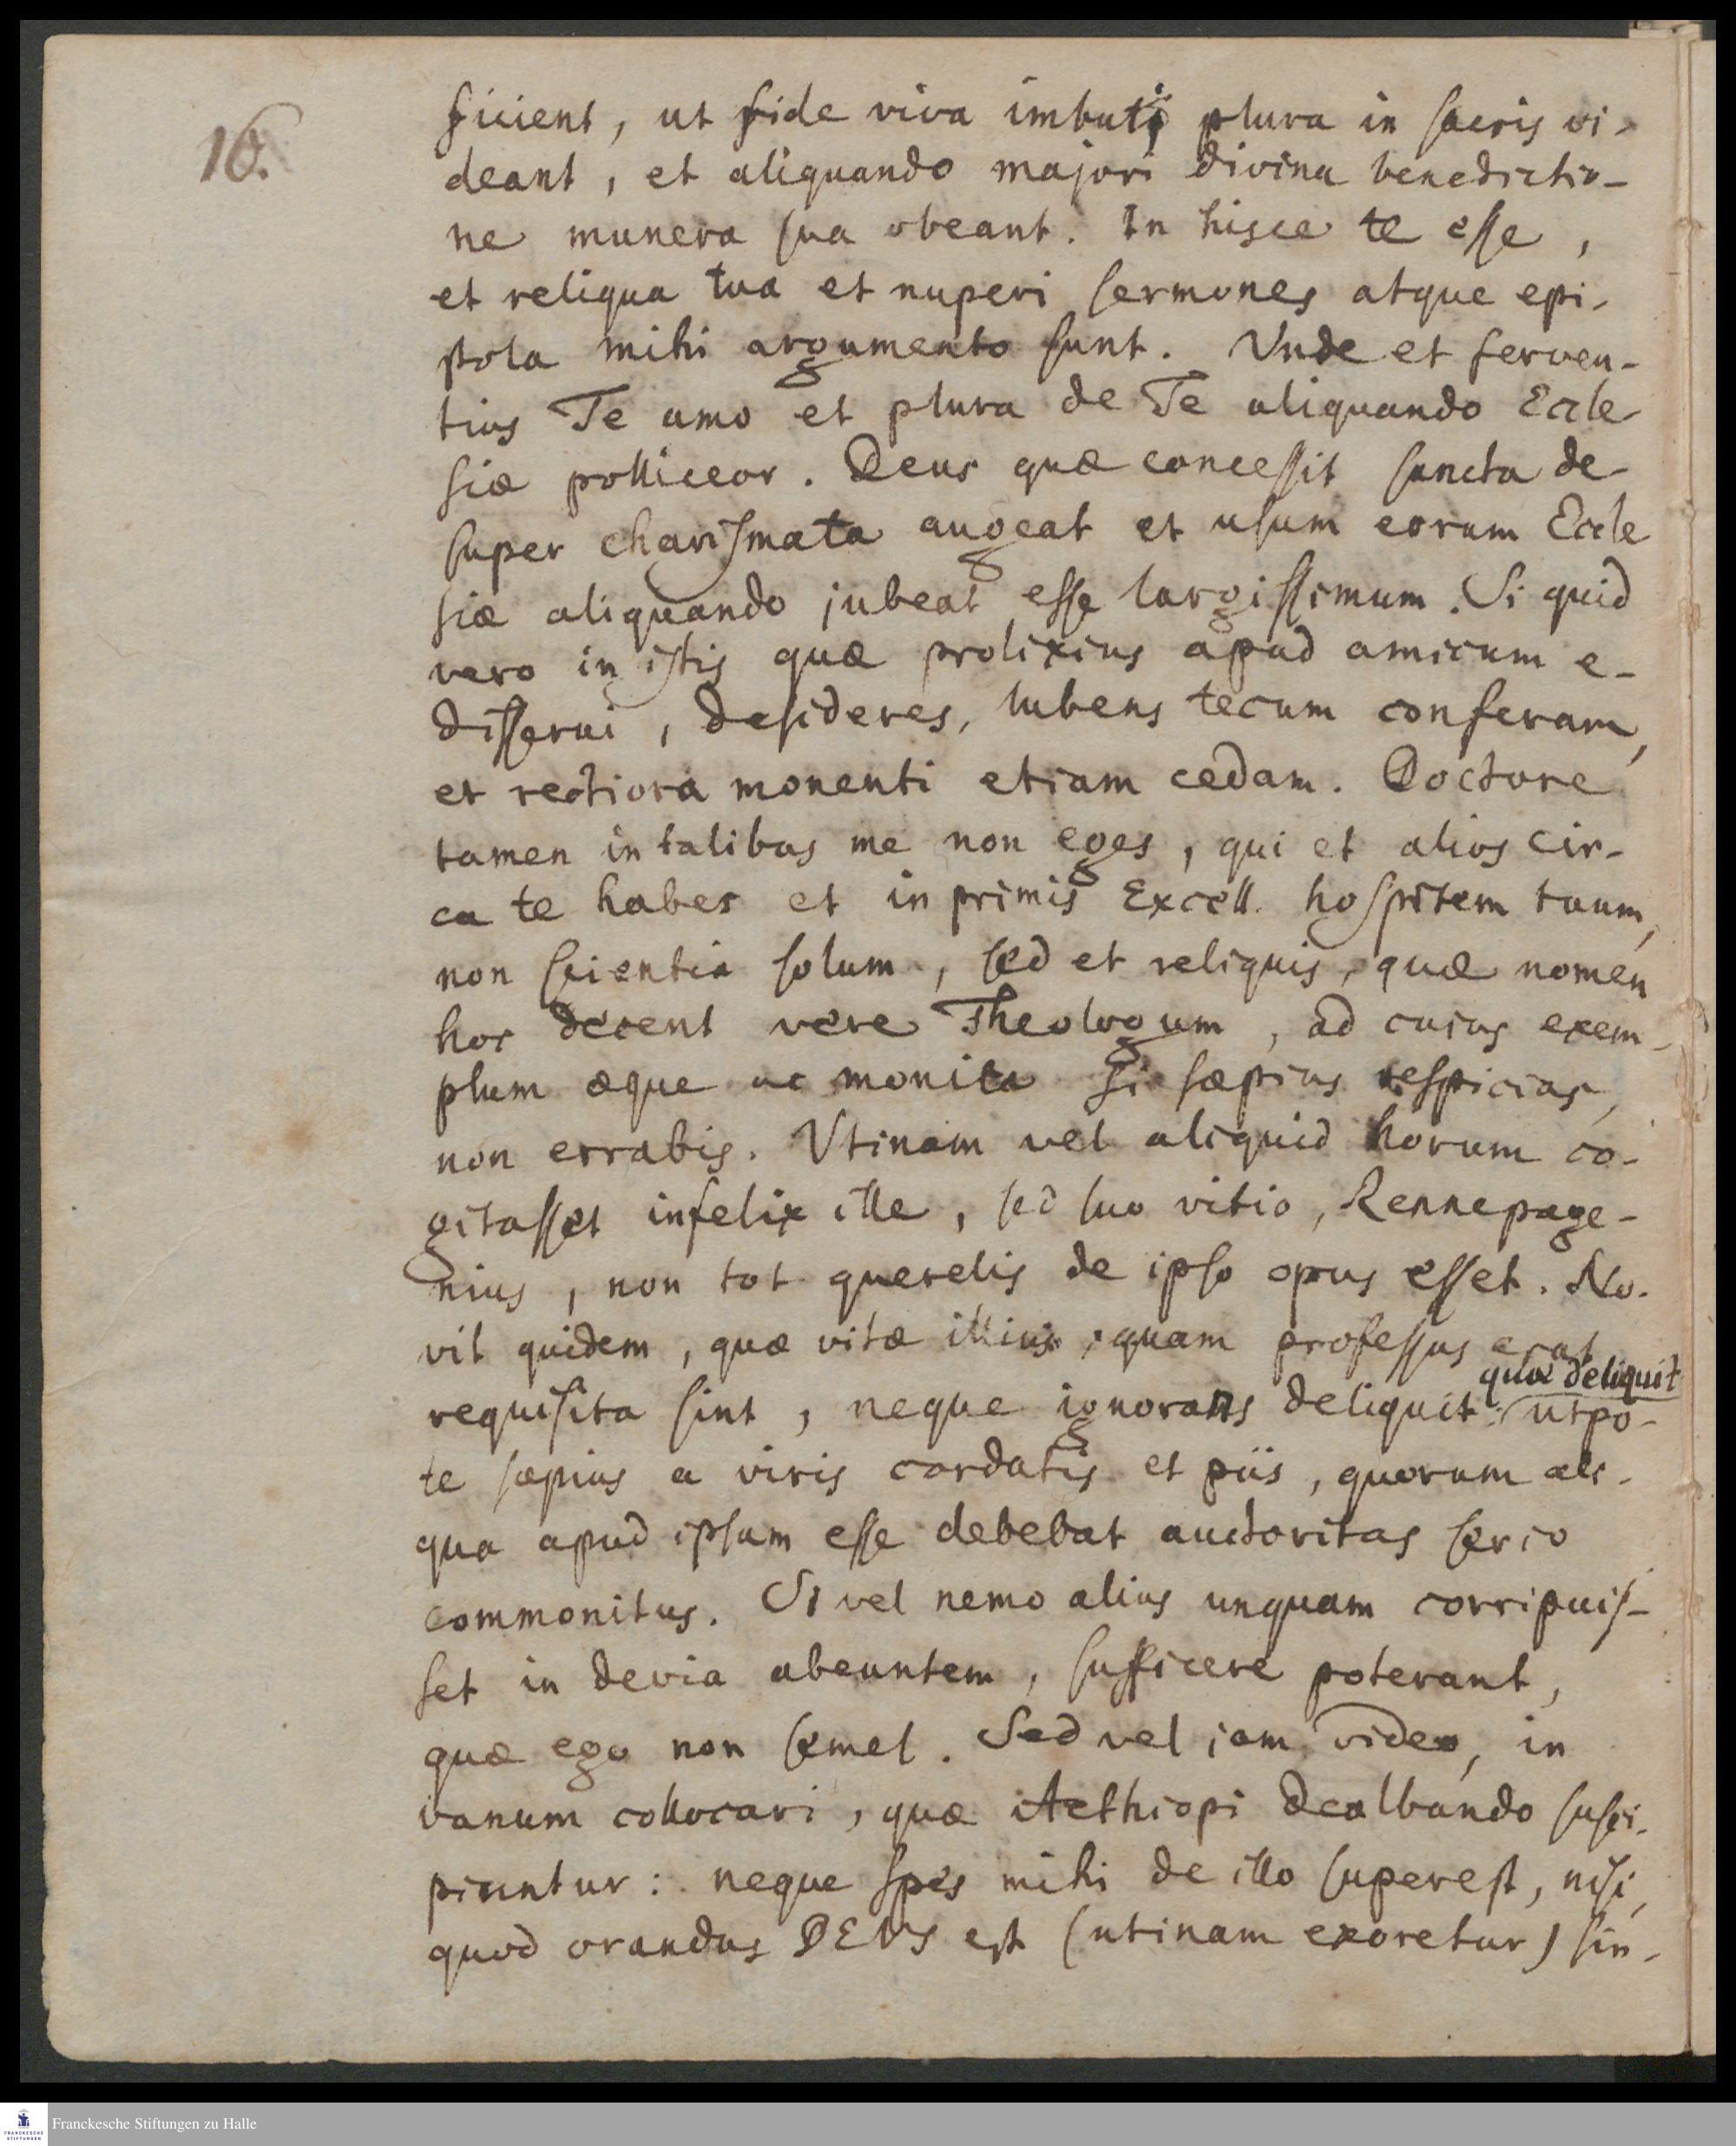 16.
ficient, ut fide viva imbuti plura in sacris vi-
deant, et aliquando majori divina benedictio-
ne munera sua obeant. In hisce te esse,
et reliqua tua et nuperi sermones atque epi-
stola mihi argumento sunt. Vnde et ferven-
tius Te amo et plura de Te aliquando Eccle
siæ polliceor. Deus quæ concessit sancta de-
super charismata augeat et usum eorum Eccle
siæ aliquando jubeat esse largissimum. Si quid
vero in istis quæ prolixius apud amicum e-
disserui, desideres, lubens tecum conferam,
et rectiora monenti etiam cedam. Doctore
tamen in talibus me non eges, qui et alios cir-
ca te habes et in primis Excell. hospitem tuum,
non scientia solum, sed et reliquis, quæ nomen
hoc decent vere Theologum, ad cuius exem-
plum æque ac monita si sæpius respicias,
non errabis. Vtinam vel aliquid horum co-
gitasset infelix ille, sed suo vitio, Rennepage-
nius, non tot querelis de ipso opus esset. No-
vit quidem, quæ vitæ illius, quam professus erat
quæ deliquit
requisita sint, neque ignorans deliquit utpo-
te sæpius a viris cordatis et piis, quorum ali-
qua apud ipsum esse debebat auctoritas serio
commonitus. Si vel nemo alius unquam corripuis-
set in devia abeuntem, sufficere poterant,
quæ ego non semel. Sed vel jam video, in
vanum collocari, quæ Aethiopi dealbando susci-
piuntur: neque spes mihi de illo superest, nisi,
quod orandus DEVS est (utinam exoretur) sin-
Franckesche Stiftungen zu Halle
FRANCKESCHE
STIFTUNGEN